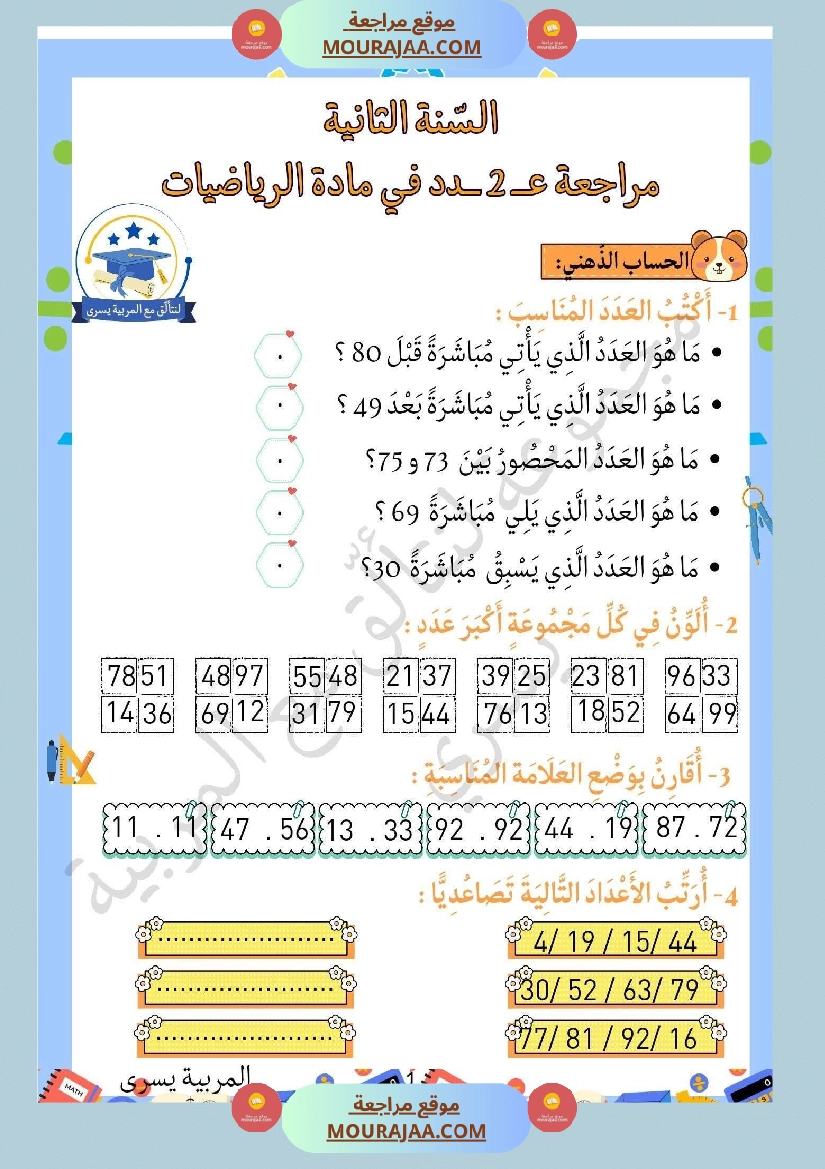 موقع مراجعة
MOURAJAA.COM
السّنة الثانية
مراجعة عـ 2 ـدد في مادة الرياضيات
لنتألّق مع المربية يسرى
الحساب الذّهني:
1- أَكْتُبُ العَدَدَ المُنَاسِبَ :
• مَا هُوَ العَدَدُ الَّذِي يَأْتِي مُبَاشَرَةً قَبْلَ 80 ؟
• مَا هُوَ العَدَدُ الَّذِي يَأْتِي مُبَاشَرَةً بَعْدَ 49 ؟
• مَا هُوَ العَدَدُ المَحْصُورُ بَيْنَ 73 و 75؟
• مَا هُوَ العَدَدُ الَّذِي يَلِي مُبَاشَرَةً 69 ؟
• مَا هُوَ العَدَدُ الَّذِي يَسْبِقُ مُبَاشَرَةً 30؟
2- أُلَوِّنُ فِي كُلِّ مَجْمُوعَةٍ أَكْبَرَ عَدَدٍ :
78 51 48 97 55 48 21 37 39 25 23 81 96 33
14 36 69 12 31 79 15 44 76 13 18 52 64 99
3- أُقَارِنُ بِوَضْعِ العَلَامَة المُنَاسِبَةِ :
11 . 11 47 . 56 13 . 33 92 . 92 44 . 19 87 . 72
4- أُرَتِّبُ الأَعْدَادَ التَّالِيَةَ تَصَاعُدِيًّا :
4/ 19 / 15/ 44 ........................
30/ 52 / 63/ 79 ........................
77/ 81 / 92/ 16 ........................
مجموعة لنتألّق مع المربية يسرى
1
المربية يسرى
MATH
موقع مراجعة
MOURAJAA.COM